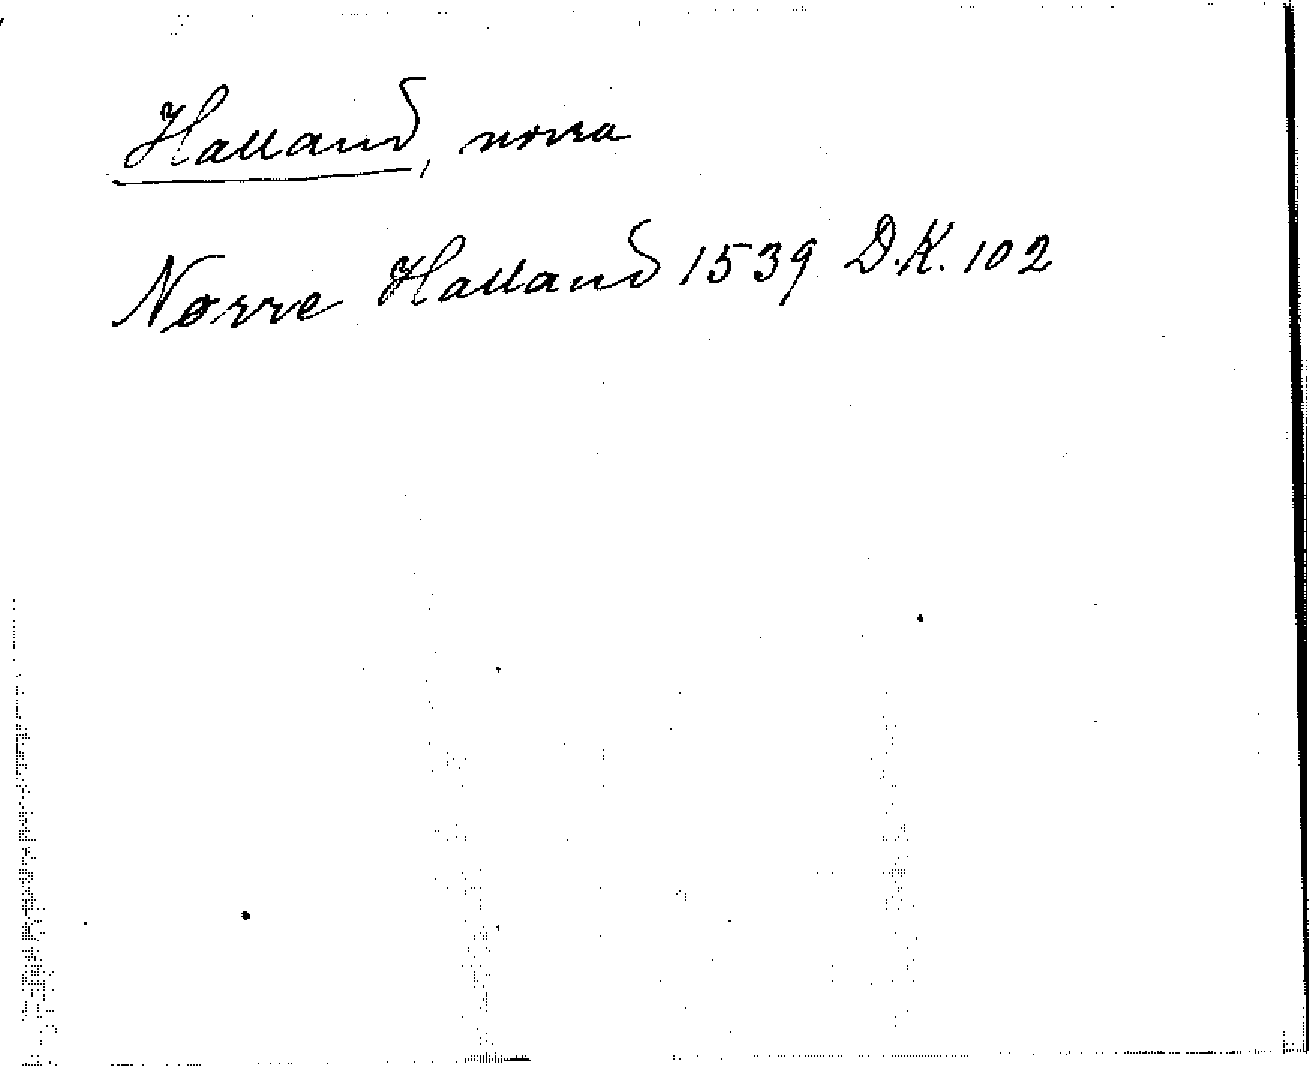 Halland, norra
Nørre Halland 1539 D.K. 102